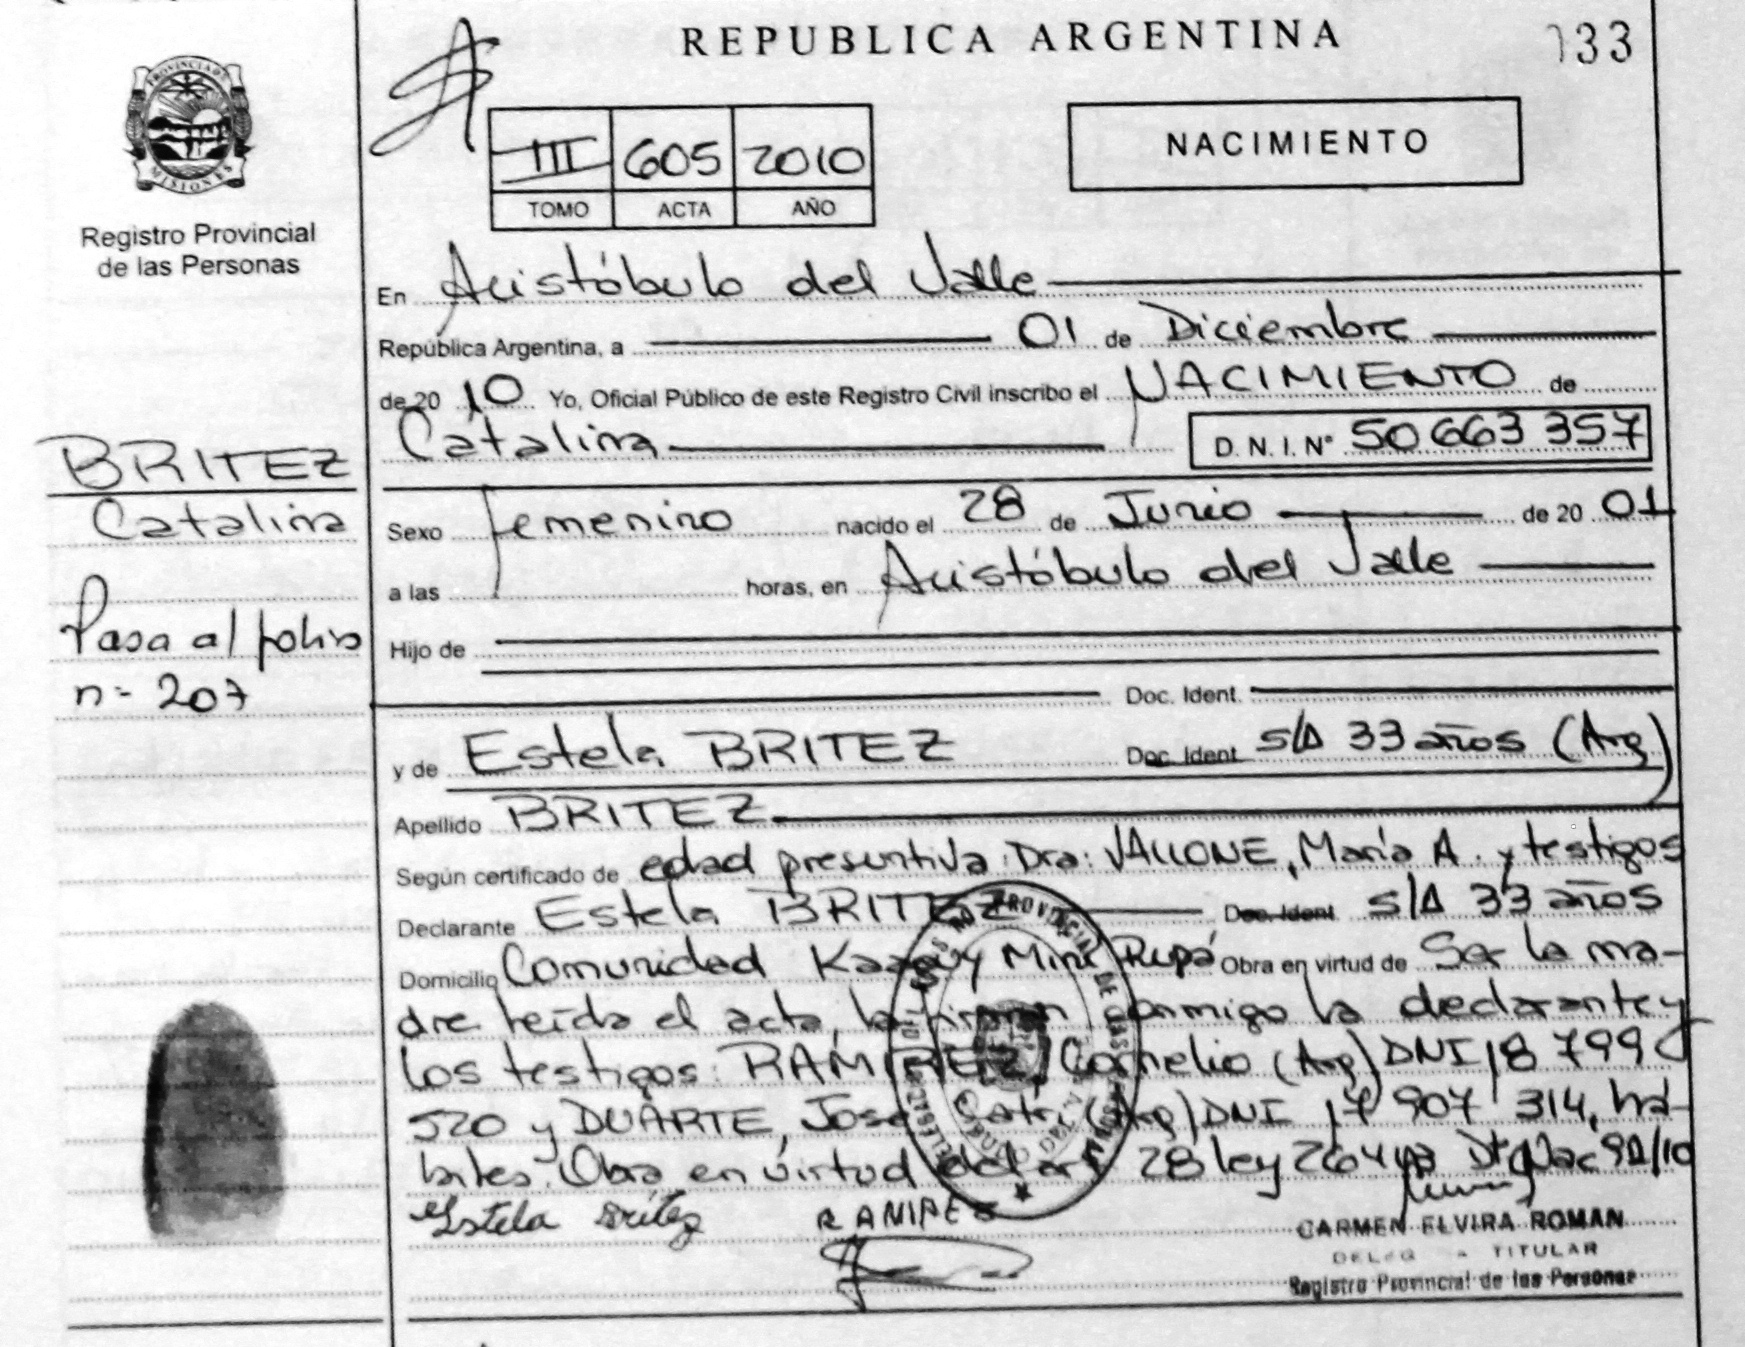 REPUBLICA ARGENTINA
133
PROVINCIA DE MISIONES
Registro Provincial
de las Personas
III 605 2010
TOMO ACTA AÑO
NACIMIENTO
En Aristóbulo del Valle
República Argentina, a 01 de Diciembre
de 20 10 Yo, Oficial Público de este Registro Civil inscribo el NACIMIENTO de
Catalina D. N. I. Nº 50 663 357
BRITEZ
Catalina
Pasa al folio
n= 207
Sexo femenino nacido el 28 de Junio de 20 01
a las horas, en Aristóbulo del Valle
Hijo de
Doc. Ident.
y de Estela BRITEZ Doc. Ident. s/D 33 años (Arg)
Apellido BRITEZ
Según certificado de edad presuntiva Dra: VALLONE, María A. y testigos
Declarante Estela BRITEZ Doc. Ident s/D 33 años
Domicilio Comunidad Kaaguy Mini Rupá Obra en virtud de Ser la ma-
dre leída el acta, la firman conmigo la declarante y
los testigos: RAMIREZ, Cornelio (Arg) DNI 18 799
520 y DUARTE, José (Arg) DNI 17 907 314, há-
biles. Obra en virtud del art 28 ley 264 Dto Nac 92/10
Estela Britez RAMIREZ
CARMEN ELVIRA ROMAN
TITULAR
Registro Provincial de las Personas